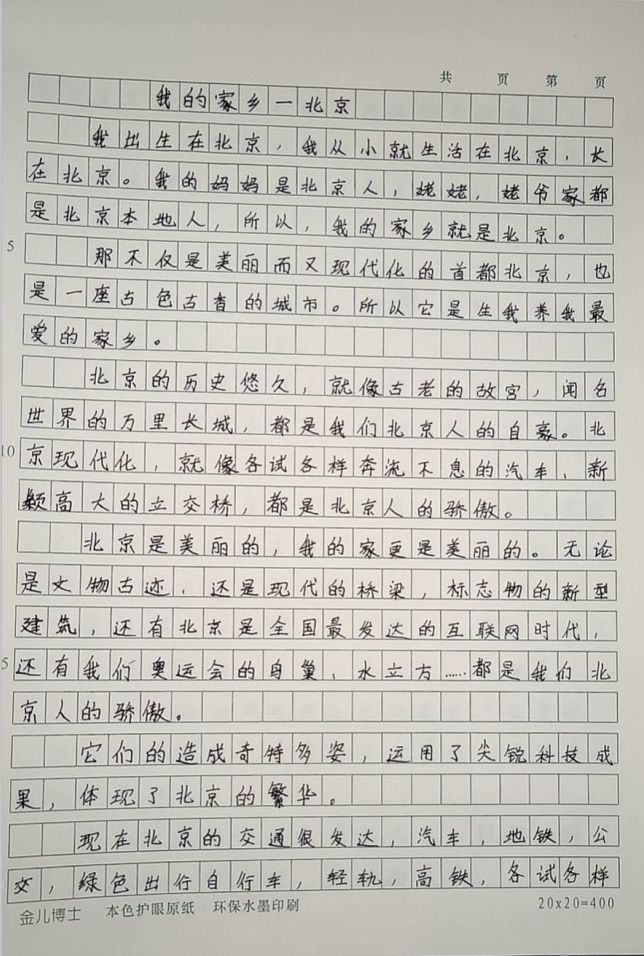 共 页 第 页
我的家乡一北京
我出生在北京，我从小就生活在北京，长
在北京。我的妈妈是北京人，姥姥，姥爷家都
是北京本地人，所以，我的家乡就是北京。
5
那不仅是美丽而又现代化的首都北京，也
是一座古色古香的城市。所以它是生我养我最
爱的家乡。
北京的历史悠久，就像古老的故宫，闻名
世界的万里长城，都是我们北京人的自豪。北
10
京现代化，就像各试各样奔流不息的汽车、新
颖高大的立交桥，都是北京人的骄傲。
北京是美丽的，我的家更是美丽的。无论
是文物古迹，还是现代的桥梁，标志物的新型
建筑，还有北京是全国最发达的互联网时代，
5
还有我们奥运会的鸟巢、水立方……都是我们北
京人的骄傲。
它们的造成奇特多姿，运用了尖锐科技成
果，体现了北京的繁华。
现在北京的交通很发达，汽车，地铁，公
交，绿色出行自行车，轻轨，高铁，各试各样
金儿博士 本色护眼原纸 环保水墨印刷 20x20=400